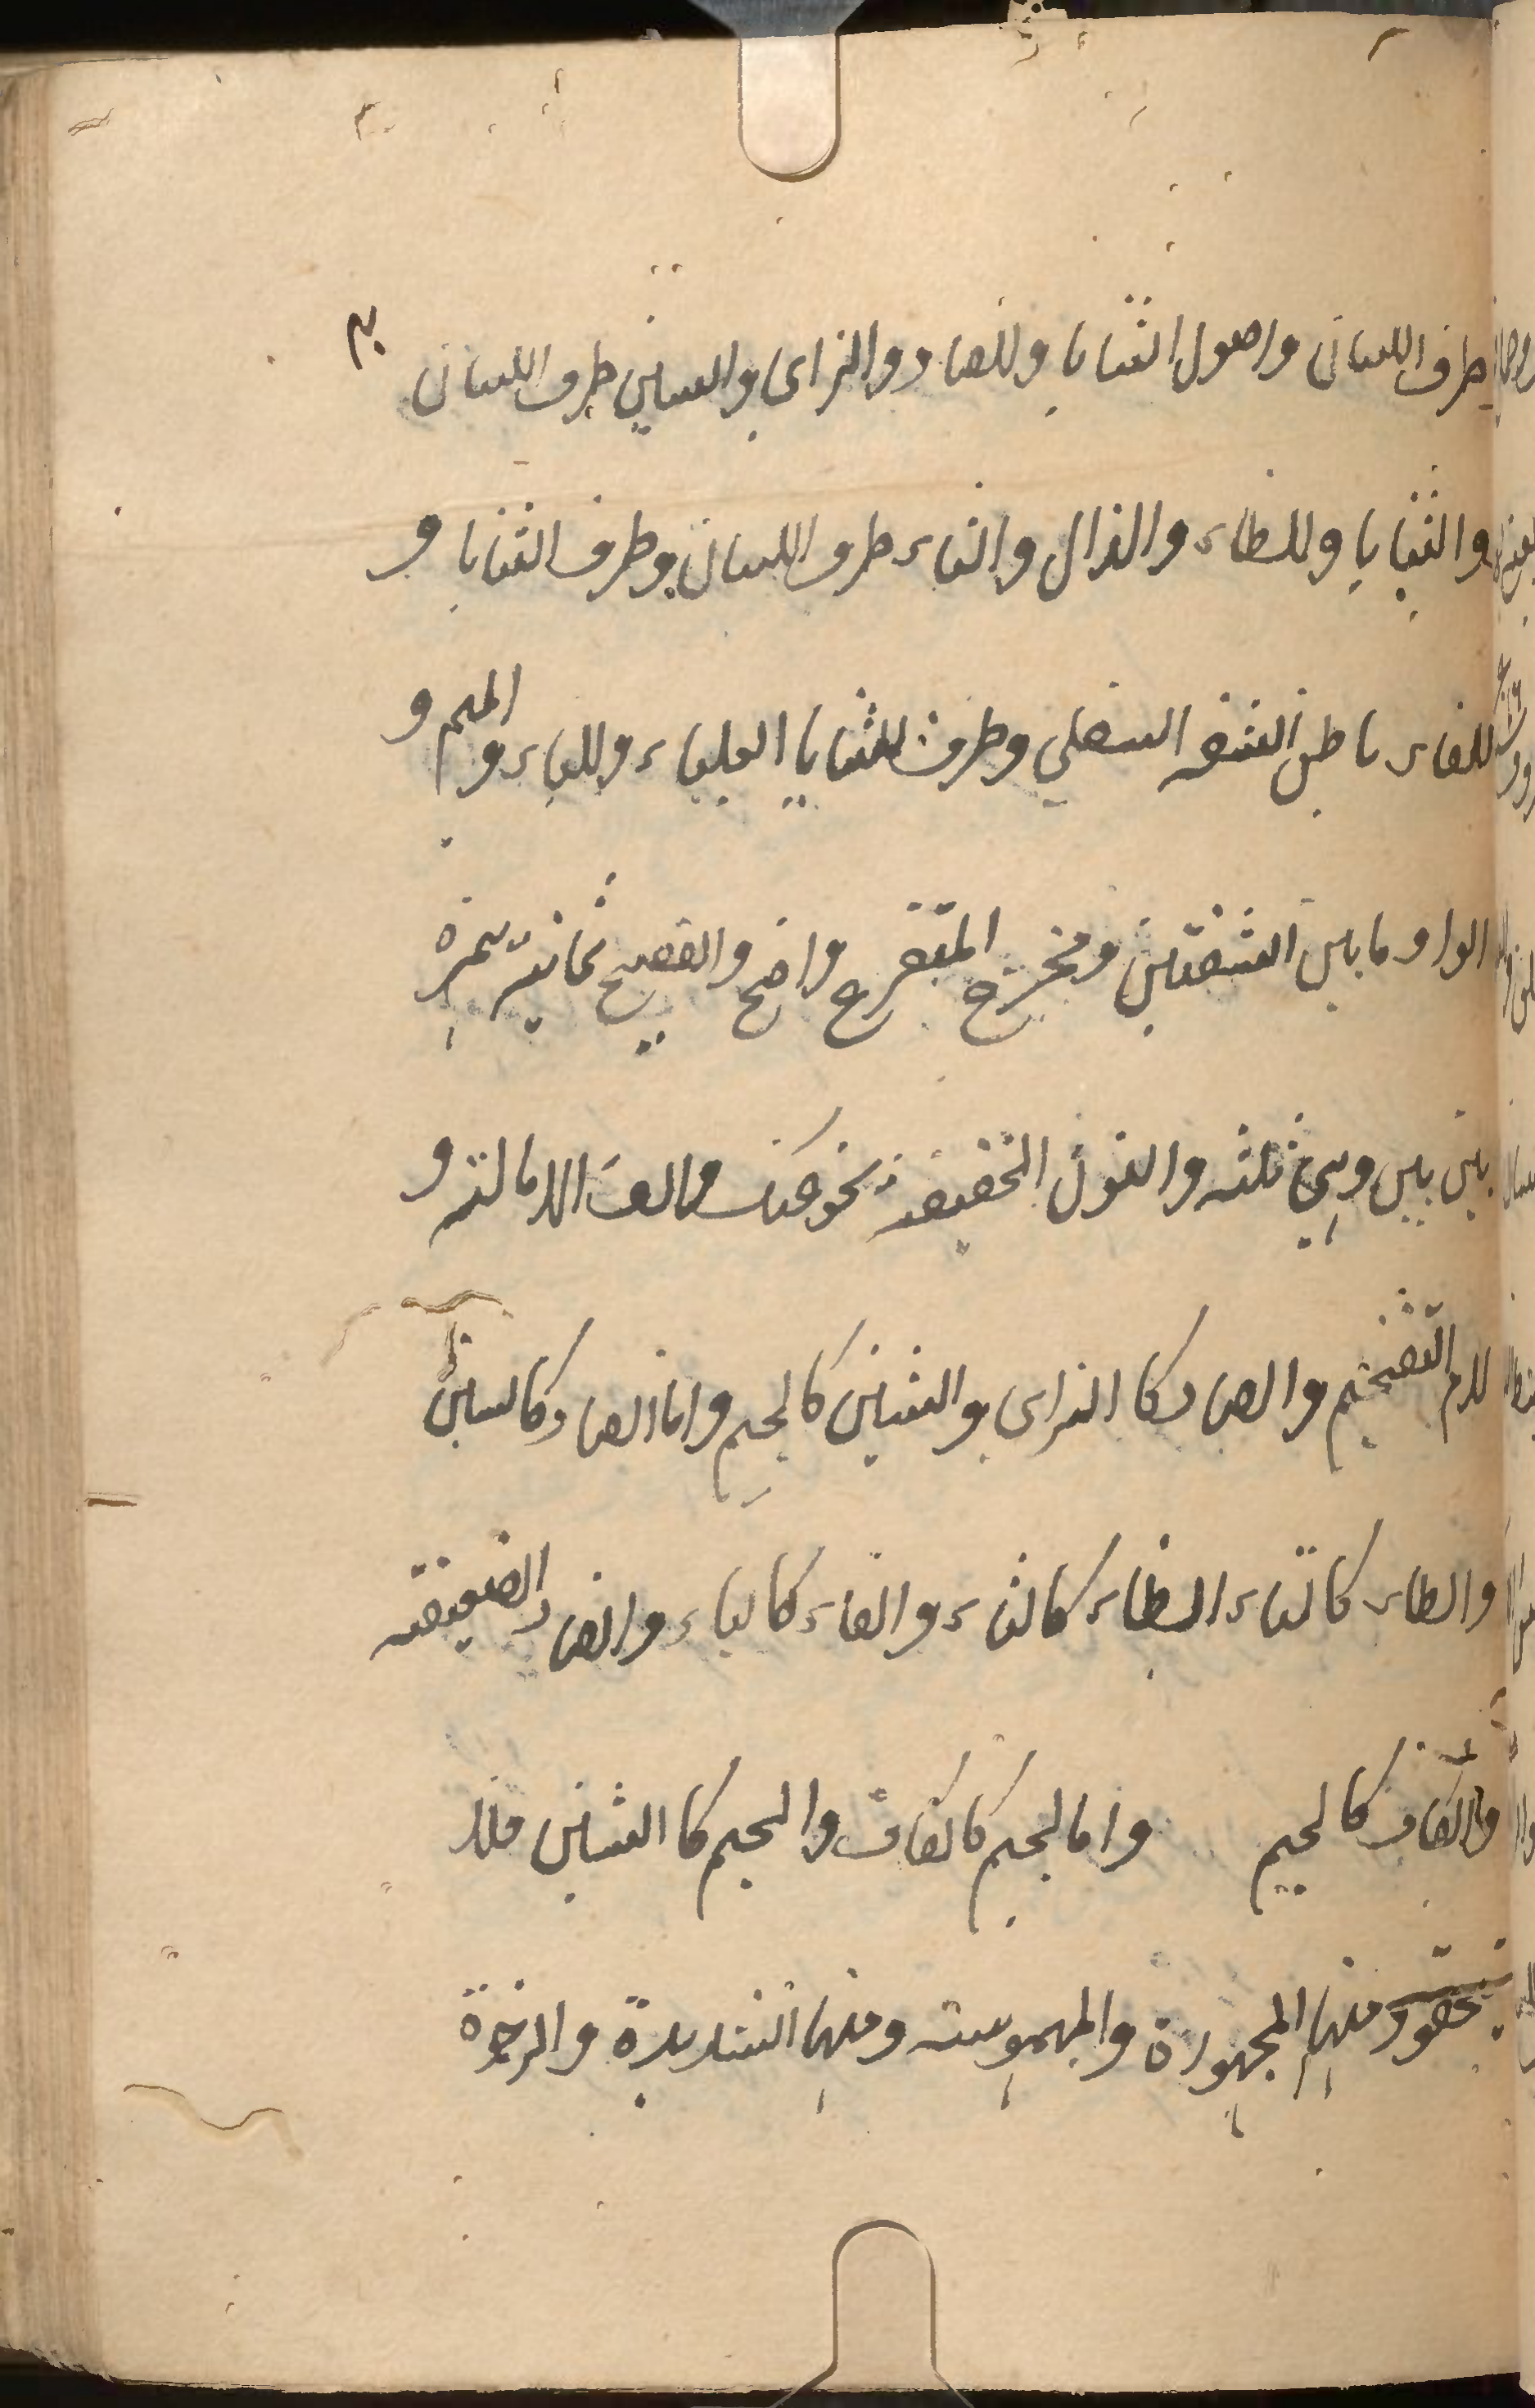 طرف اللسان واصول الثنايا وللصاد والزاى والسين طرف اللسان
والثنايا وللظاء والذال والثاء طرف اللسان وطرف الثنايا و
للفاء باطن الشفه السفلي وطرف للثنايا العلياء وللباء والميم و
الواو ما بين الشفتين ومخرج المتفرع واضح والفصيح ثمانية همزة
بين بين وهي ثلثه والنون الخفيفة نحو عنك والف الامالة و
لام التفخيم والصاد كا الزاى والشين كالجيم واما الصاد كالسين
والطاء كالتاء الظاء كالثاء والفاء كالباء والضاد الضعيفة
والكاف كالجيم واما لجيم كالكاف والجيم كا الشين فلا
يتحقق ومنها المجهورة والمهموسة ومنها الشديدة والرخوة